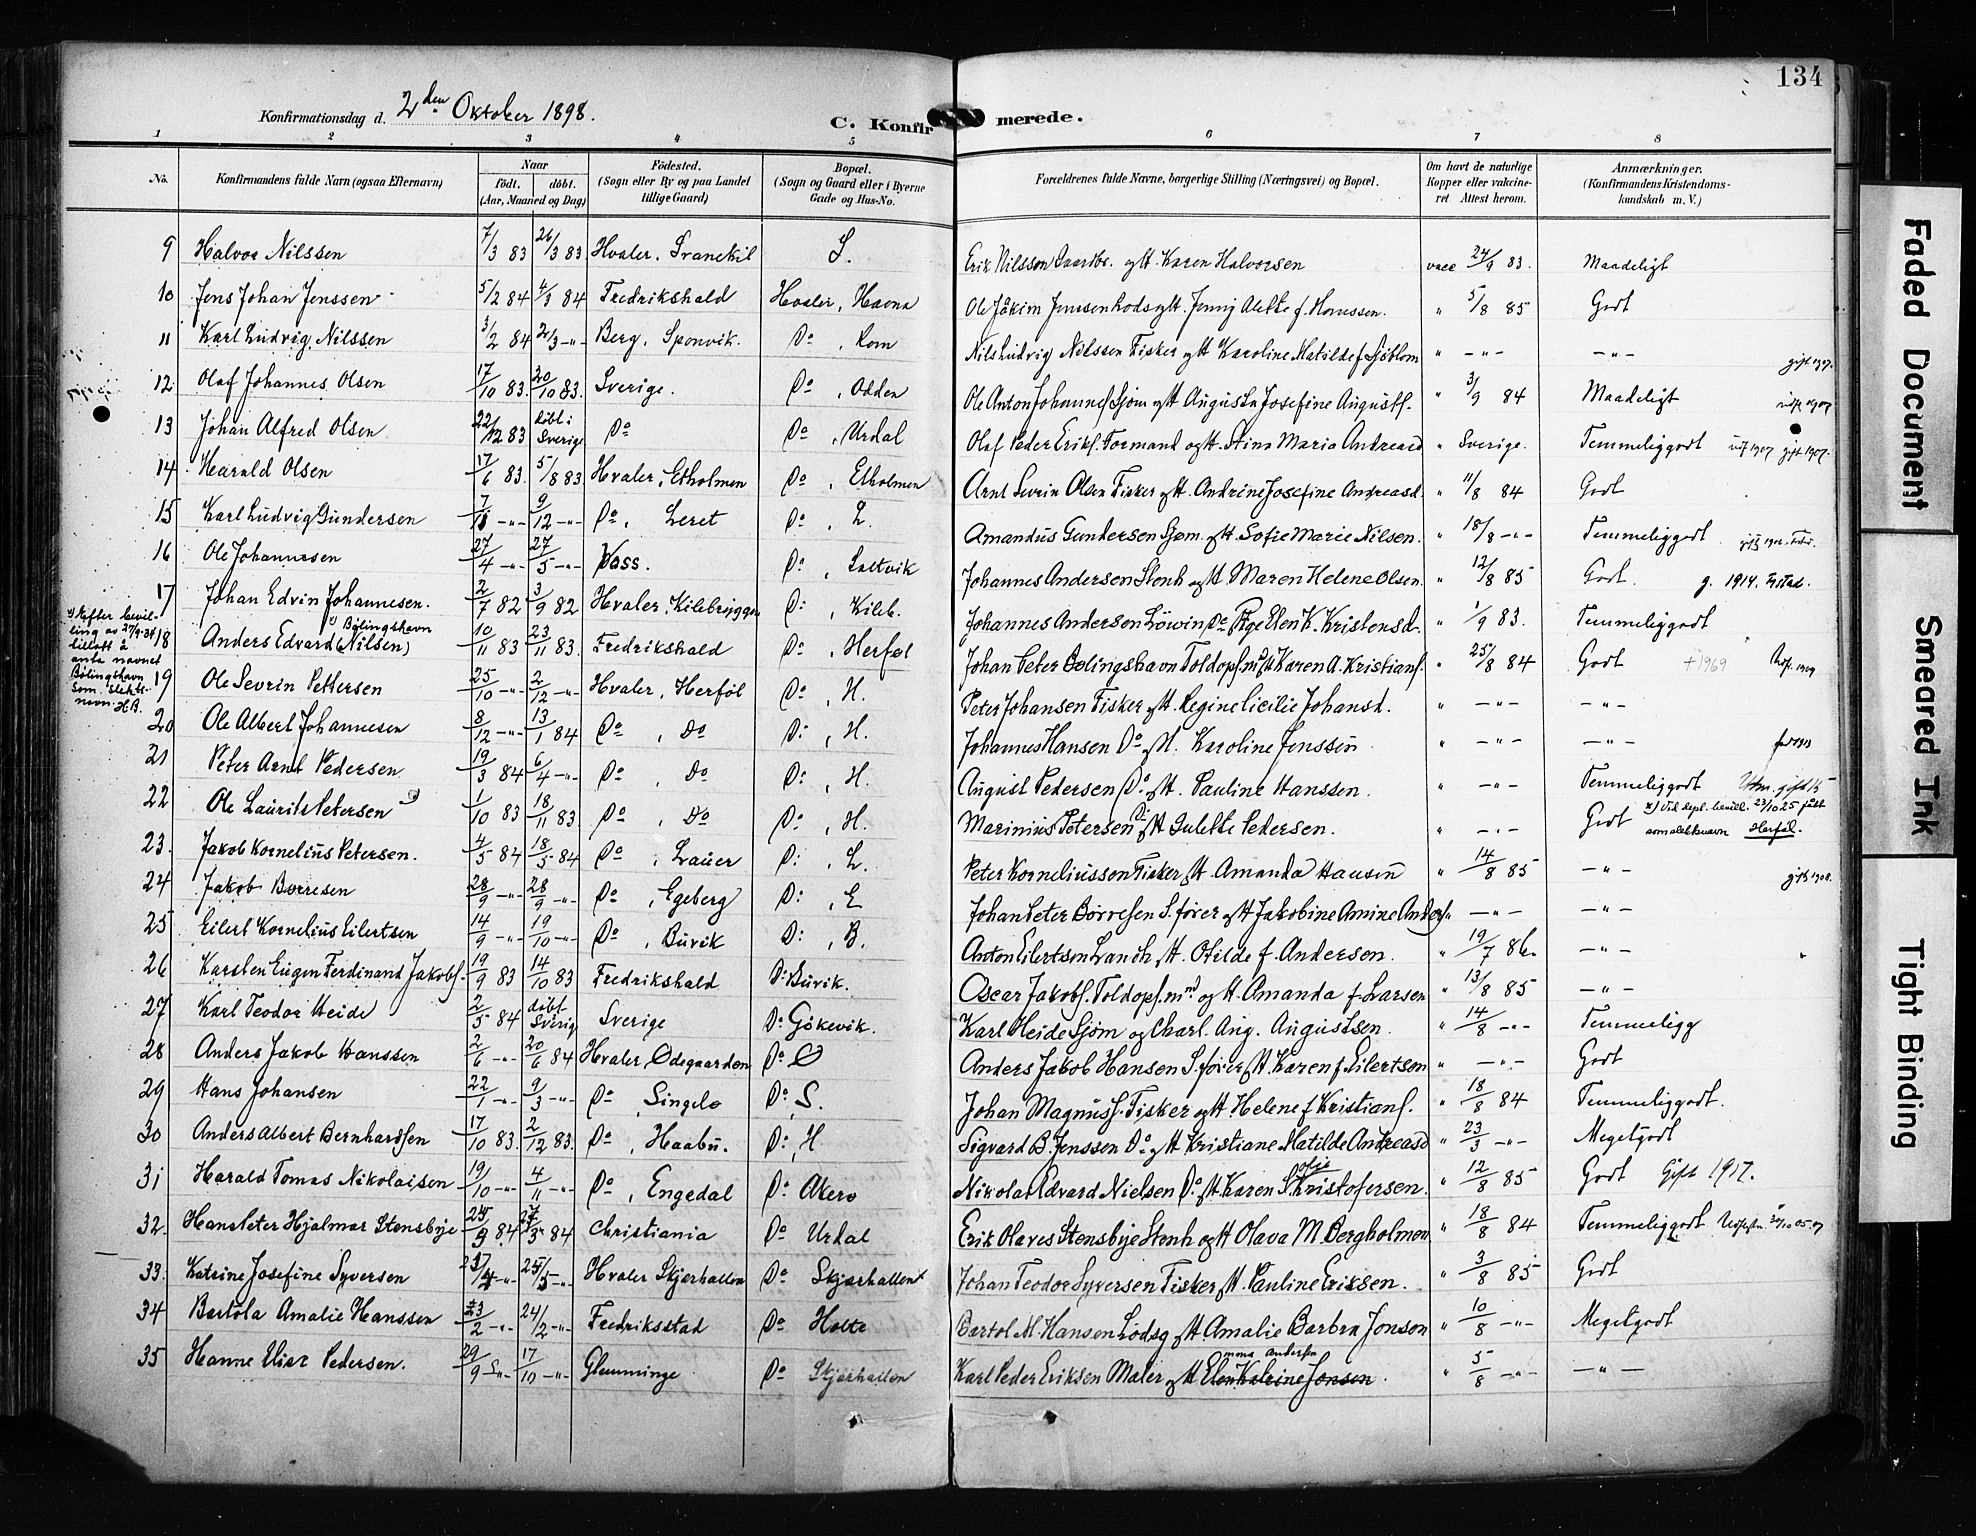 134
Konfirmationsdag d. 2den Oktober 1898.
C. Konfirmerede.
1 2 3 4 5 6 7 8
No.
Konfirmandens fulde Navn (ogsaa Efternavn)
Naar
födt. döbt.
(Aar, Maaned og Dag)
Födested.
(Sogn eller By og paa Landet
tillige Gaard)
Bopæl.
(Sogn og Gaard eller i Byerne
Gade og Hus-No.
Forældrenes fulde Navne, borgerlige Stilling (Næringsvei) og Bopæl.
Om havt de naturlige
Kopper eller vakcine-
ret Attest herom.
Anmærkninger.
(Konfirmandens Kristendoms-
kundskab m. V.)
9 Halvor Nilssen 7/3 83 26/3 83 Hvaler. Svanekil S. Erik Nilsson Gaardbr. og H. Karen Halvorsen vacc 24/9 83. Maadeligt
10 Jens Johan Jenssen 5/2 84 4/3 84 Fredrikshald Hvaler, Havna Ole Joakim Jenssen Lods og H. Jenny Alette f. " 5/8 85 Godt
11 Karl Ludvig Nilssen 3/2 84 2/3 -"- Berg, Sponvik. Do , Rom Nils Ludvig Nilssen Fisker og H Karoline Matilde f Sjöblom " -"- -"-
gift 1907.
12 Olaf Johannes Olsen 17/10 83. 20/10 83. Sverige. Do , Odden Ole Anton Johannes Sjøm og H Augusta Josefine Augustf. " 3/9 84 Maadeligt
13 Johan Alfred Olsen 22/12 83 döbt i Sverige Do Do , Urdal Olaf Peder Erikf. Formand og H. Stina Maria Andreasd " Sverige. Temmeliggodt 1907 gift 1907.
14 Harald Olsen 17/6 83. 5/8 83 Hvaler, Etholmen Do , Etholmen Arnt Sevrin Olsen Fisker og H. Andrine Josefine Andreasd. " 11/8 84 Godt
15 Karl Ludvig Gundersen 7/11 -"- 9/12 -"- Do , Leret Do , L. Amandus Gundersen Sjøm. og H. Sofie Marie Nilsen. " 18/8 -"- Temmeliggodt
16 Ole Johannesen 27/4 -"- 27/5 -"- Voss. Do , Saltvik Johannes Andersen Stenh og H Maren Helene Olsen. " 12/8 85 Godt. g. 1914.
17 Johan Edvin Johannesen. 2/7 82 3/9 82 Hvaler, Kilebryggen Do , Kileb. Johannes Andersen Löwin Do Pige Elen K. Kristensd. " 1/9 83. Temmeliggodt
1) Efter bevil-
ling av 27/9-34
tillatt å
anta navnet
Bølingshavn
som slekts-
navn. H.B.
1) Bølingshavn
18 Anders Edvard (Nilsen) 10/11 83 23/11 83. Fredrikshald Do , Herföl Johan Peter Bølingshavn Toldopf.md H Karen A. Kristianf. " 25/8 84 Godt + 1969
19 Ole Sevrin Pettersen 25/10 -"- 2/12 -"- Hvaler, Herföl Do , H. Peter Johansen Fisker og H. Regine Cicilie Johansd. " -"- -"-
20 Ole Albert Johannesen 8/12 -"- 13/1 84 Do , Do Do , H. Johannes Hansen Do og H. Karoline Jenssen " -"- -"-
21 Peter Arnt Pedersen 19/3 84 6/4 -"- Do , Do Do , H. August Pedersen Do og H. Pauline Hanssen. " -"- Temmeliggodt gift 15
22 Ole Laurits Petersen x) 1/10 83 18/11 83 Do , Do Do , H. Marinius Petersen Do og H Gulette Pedersen. " -"- Godt x) Ved kgl. bevill. 23/10 25 fått
som slektsnavn Herføl.
23. Jakob Kornelius Petersen. 4/5 84 18/5 84 Do , Lauer Do , L. Peter Korneliusson Fisker og H. Amanda Hansen " 14/8 85 -"-
gift 1908.
24 Jakob Borresen 28/9 -"- 28/9 -"- Do , Egeberg Do , E Johan Peter Börresen S.förer og H Jakobine Amine Andersf. " -"- -"-
25 Eilert Kornelius Eilertsen 14/9 -"- 19/10 -"- Do , Buvik Do , B. Anton Eilertsen Landh og H. Otilde f. Andersen. " 19/7 86. -"-
26 Karsten Eugen Ferdinand Jakobf. 19/9 83 14/10 83 Fredrikshald Do Buvik. Oscar Jakobf. Toldopf.md og H. Amanda f. Larsen " 13/8 85 -"-
27 Karl Teodor Heide 2/5 84 döbt Sverig Sverige Do Gökevik. Karl Heide Sjøm og Charl. Aug. Augustsen. " 14/8 -"- Temmeligg
28 Anders Jakob Hanssen 2/6 -"- 20/6 84 Hvaler Ødegaarden Do Ø Anders Jakob Hansen S.förer og H. Karen f Eilertsen " -"- Godt
29 Hans Johansen 22/1 -"- 9/3 -"- Do , Singelo Do , S. Johan Magnusf. Fisker og H. Helene f Kristianf. " 18/8 84 Temmeliggodt.
30 Anders Albert Bernhardsen 17/10 83. 2/12 83. Do , Haabu. Do , H Sigvard B. Jenssen Do og H Kristiane Matilde Andreasd " 23/3 -"- Megetgodt
31 Harald Tomas Nikolaisen 19/10 -"- 4/11 -"- Do , Engedal Do Akero Nikolai Edvard Nielsen Do og H Karen Sofie Kristofersen. " 12/8 85 Godt Gift 1917.
32 Hans Peter Hjalmar Stensbye 25/3 84 84 Christiania Do Urdal Erik Olaves Stensbye Stenh og H Olava M. Bergholmen " 18/8 84 Temmeliggodt
33. Katrine Josefine Syversen 4 -"- 25/5 -"- Hvaler Skjærhallen Do Skjærhallen Johan Teodor Syversen Fisker og H. Pauline Eriksen. " 3/8 85 Godt
34 Bartola Amalie Hanssen 23/2 -"- 24/2 -"- Fredriksstad Do Holte Bartol M. Hansen Lodsg og H Amalie Barbra Jonson " 10/8 -"- Megetgodt
35 Hanne Elise Pedersen. 29/9 -"- 17/10 -"- Glemminge Do Skjærhallen Karl Peder Eriksen Maler og H Elen Katrine Jonsen. " 5/8 -"- -"-
Faded Document
Smeared Ink
Tight Binding